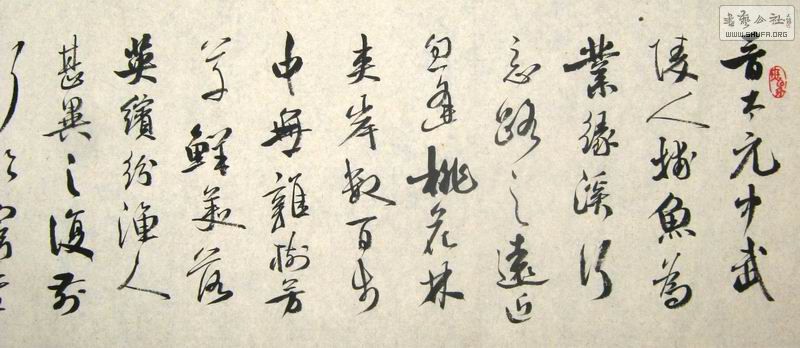 晋太元中武
陵人捕魚為
業緣溪行
忘路之遠近
忽逢桃花林
夾岸數百步
中無雜樹芳
草鮮美落
英繽紛漁人
甚異之復前
书艺公社
WWW.SHUFA.ORG